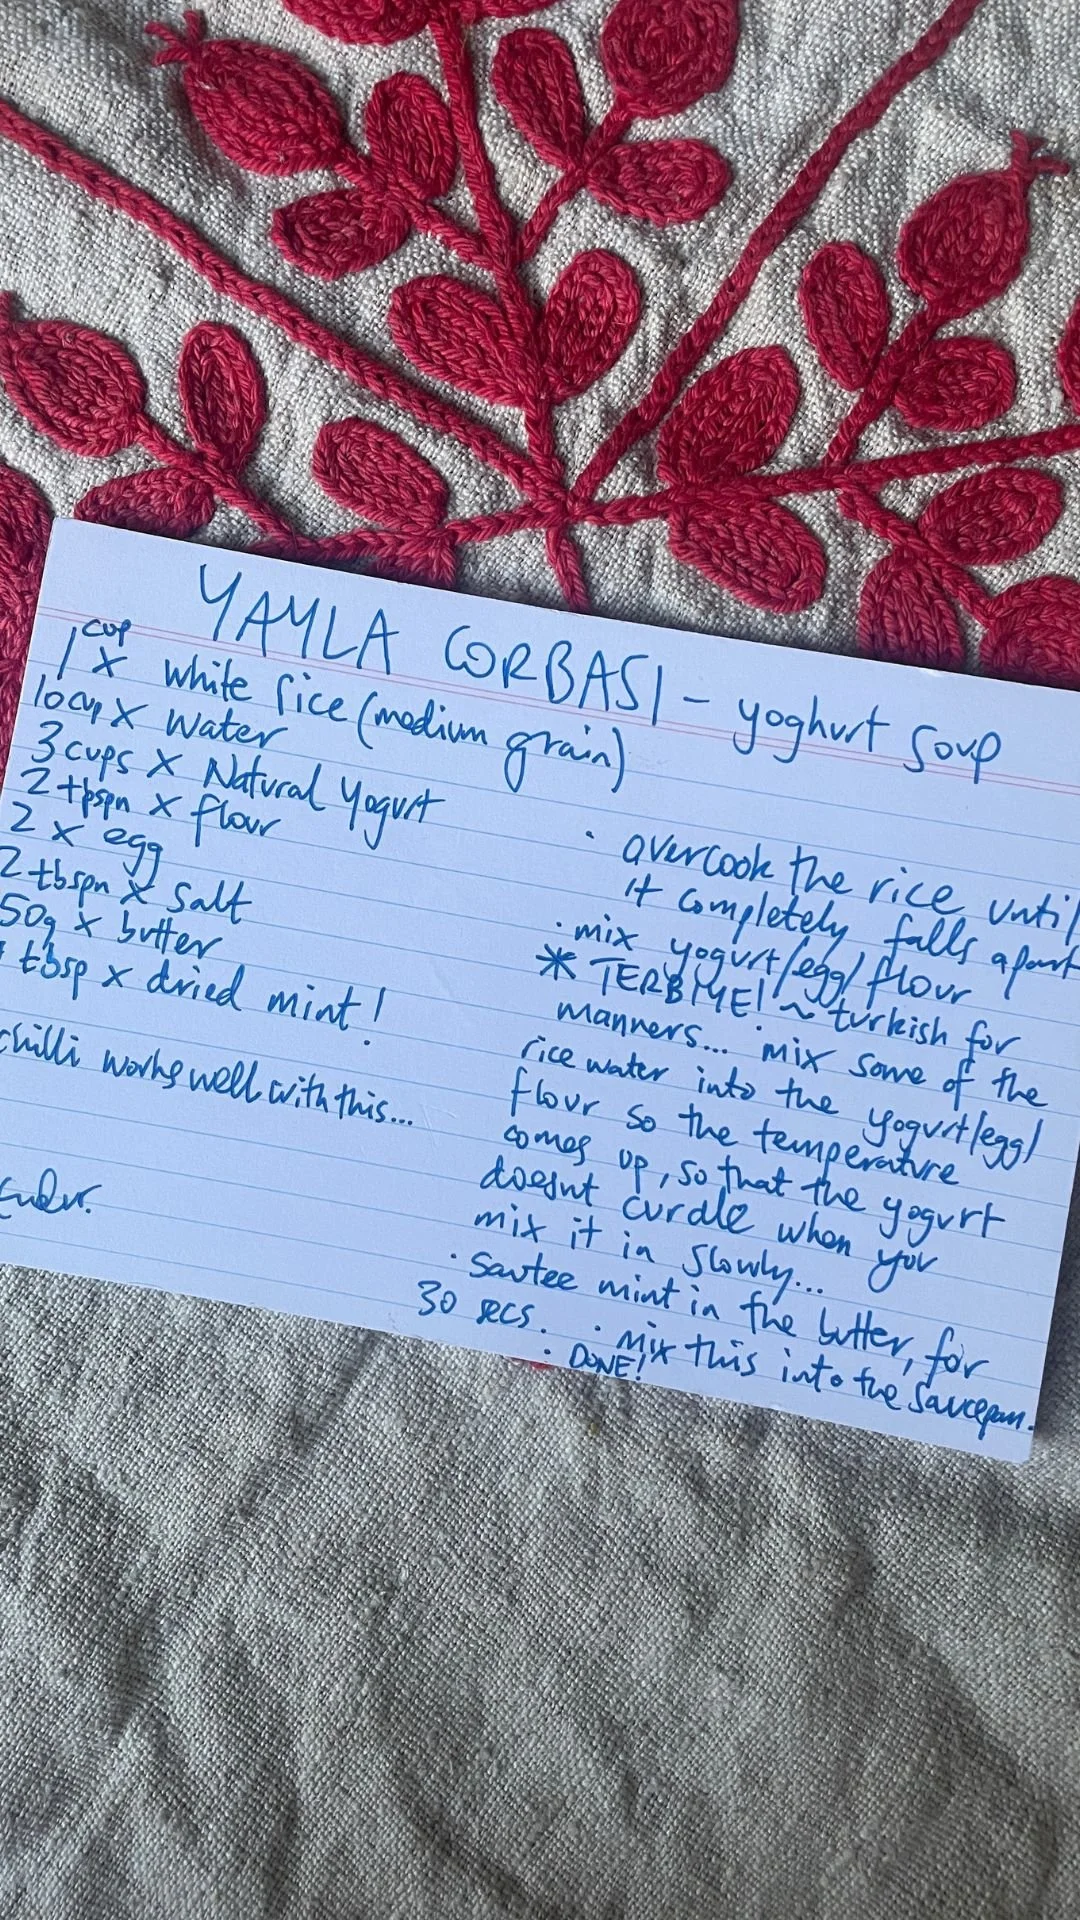 YAYLA CORBASI - yoghurt soup
1 cup x white rice (medium grain)
10cup x water
3 cups x Natural Yogurt
2 tbspn x flour
2 x egg
2 tbspn x Salt
50g x butter
tbsp x dried mint!
chilli works well with this...
· overcook the rice until
it completely falls apart
· mix yogurt/egg/flour
* TERBIYE! ~ turkish for
manners... · mix some of the
rice water into the yogurt/egg/
flour so the temperature
comes up, so that the yogurt
doesnt curdle when you
mix it in slowly...
· Sautee mint in the butter, for
30 secs.
· mix this into the saucepan.
· DONE!